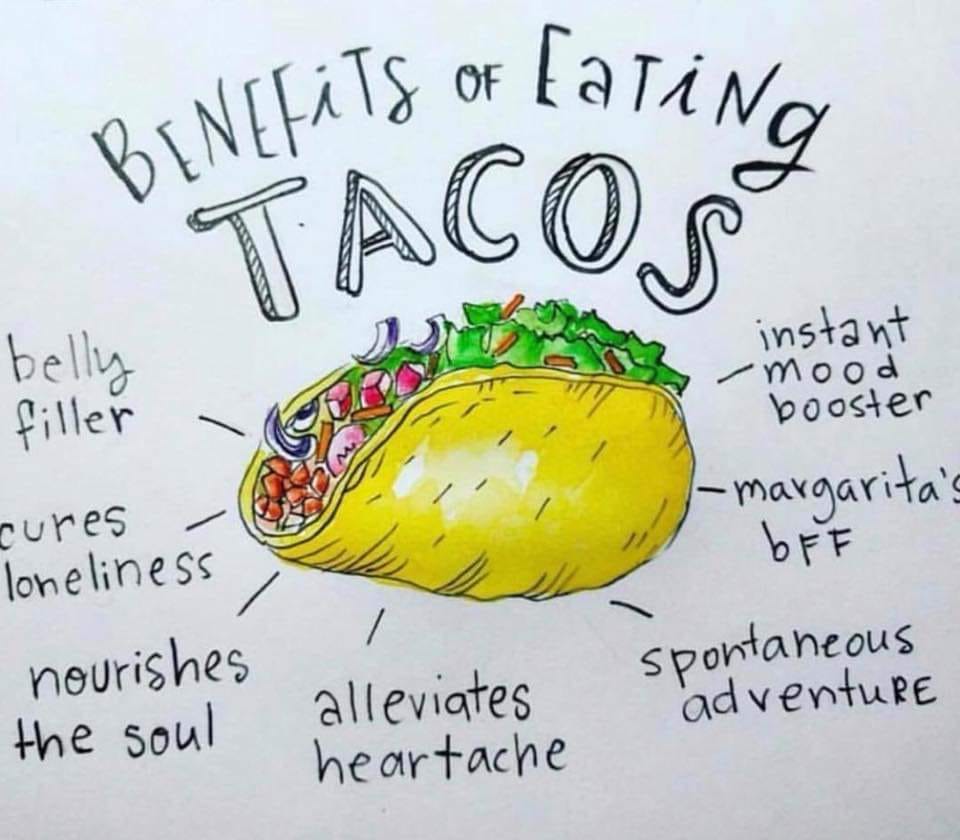 BENEFiTS OF EaTiNg
TACOS
belly
filler
instant
mood
booster
cures
loneliness
margarita's
bFF
nourishes
the soul
alleviates
heartache
spontaneous
adventuRE